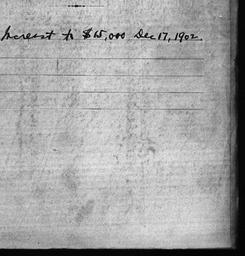 Increase to $15,000 Dec 17, 1902